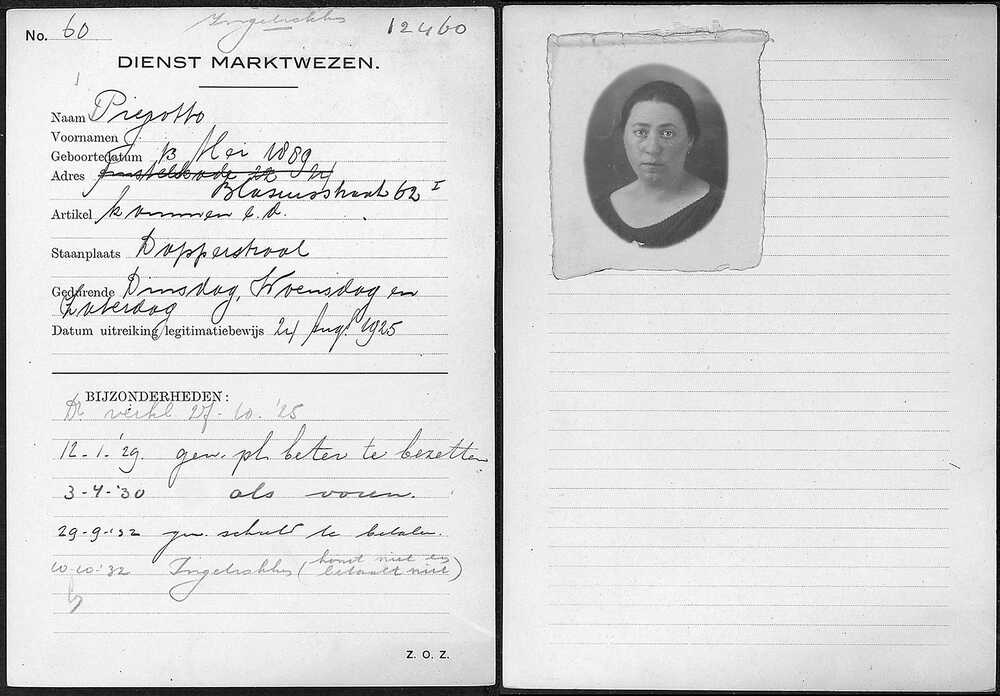 No. 60 Ingetrokken 12460
DIENST MARKTWEZEN.
Naam Piezotto
Voornamen
Geboortedatum 13 Mei 1889
Adres
Blasiusstraat 62 I
Artikel kammen e.a.
Staanplaats Dapperstraat
Gedurende Dinsdag, Woensdag en
Zaterdag
Datum uitreiking legitimatiebewijs 24 Aug. 1925
BIJZONDERHEDEN:
verkl 27-10.'25
12-1.'29. gew. pl. beter te bezetten
3-4-'30 als voren.
29-9-'32 gew. schuld te betalen.
10-10.'32 Ingetrokken (komt niet en
betaalt niet)
Z. O. Z.